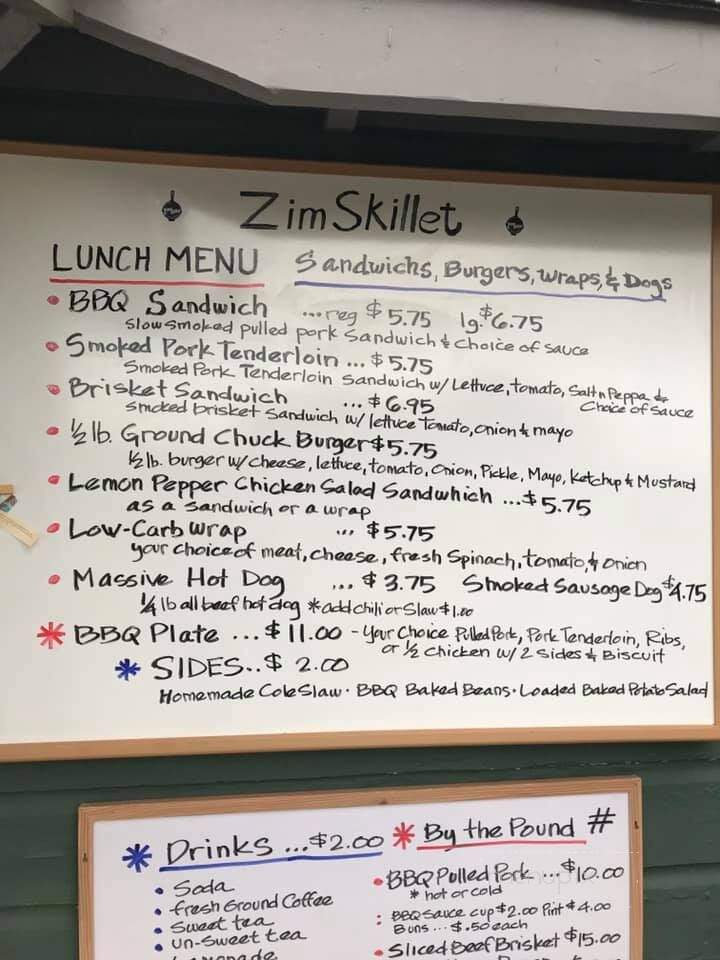 Zim Skillet
LUNCH MENU Sandwichs, Burgers, Wraps, & Dogs
• BBQ Sandwich ...reg $5.75 lg. $6.75
Slow smoked pulled pork Sandwich & Choice of sauce
• Smoked Pork Tenderloin ... $5.75
Smoked Pork Tenderloin Sandwich w/ Lettuce, tomato, Salt n Peppa &
Choice of Sauce
• Brisket Sandwich ... $6.95
Smoked brisket Sandwich w/ lettuce tomato, onion & mayo
• ½ lb. Ground Chuck Burger $5.75
½ lb. burger w/ cheese, lettuce, tomato, Onion, Pickle, Mayo, Ketchup & Mustard
• Lemon Pepper Chicken Salad Sandwhich ... $5.75
as a Sandwich or a wrap
• Low-Carb Wrap ... $5.75
your choice of meat, cheese, fresh Spinach, tomato, & onion
• Massive Hot Dog ... $3.75 Smoked Sausage Dog $4.75
¼ lb all beef hot dog *add chili or Slaw $1.00
* BBQ Plate ... $11.00 - Your Choice Pulled Pork, Pork Tenderloin, Ribs,
or ½ Chicken w/ 2 Sides & Biscuit
* SIDES.. $2.00
Homemade Cole Slaw • BBQ Baked Beans • Loaded Baked Potato Salad
* Drinks ... $2.00
• Soda
• fresh Ground Coffee
• Sweet tea
• un-Sweet tea
* By the Pound #
• BBQ Pulled Pork ... $10.00
* hot or cold
: BBQ Sauce cup $2.00 Pint $4.00
Buns ... $.50 each
• Sliced Beef Brisket $15.00